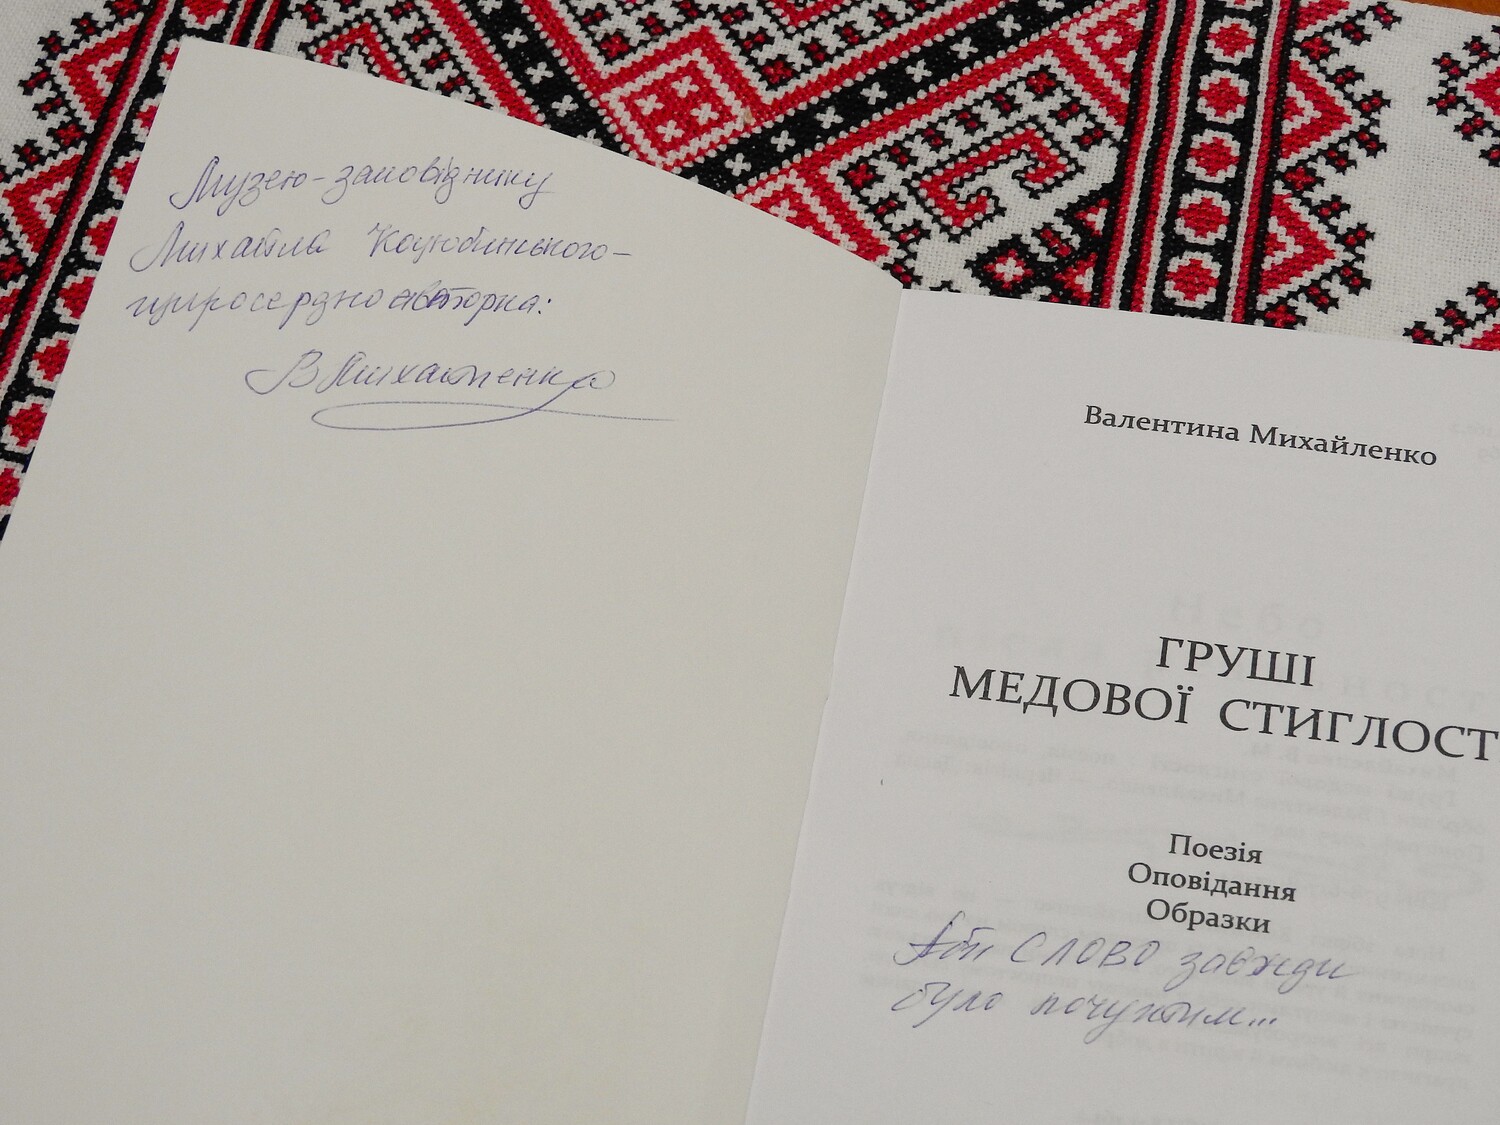 Музею-заповіднику
Михайла Коцюбинського -
щиросердно авторка:
В Михайленко
Валентина Михайленко
ГРУШІ
МЕДОВОЇ СТИГЛОСТ
Поезія
Оповідання
Образки
Аби СЛОВО завжди
було почутим...